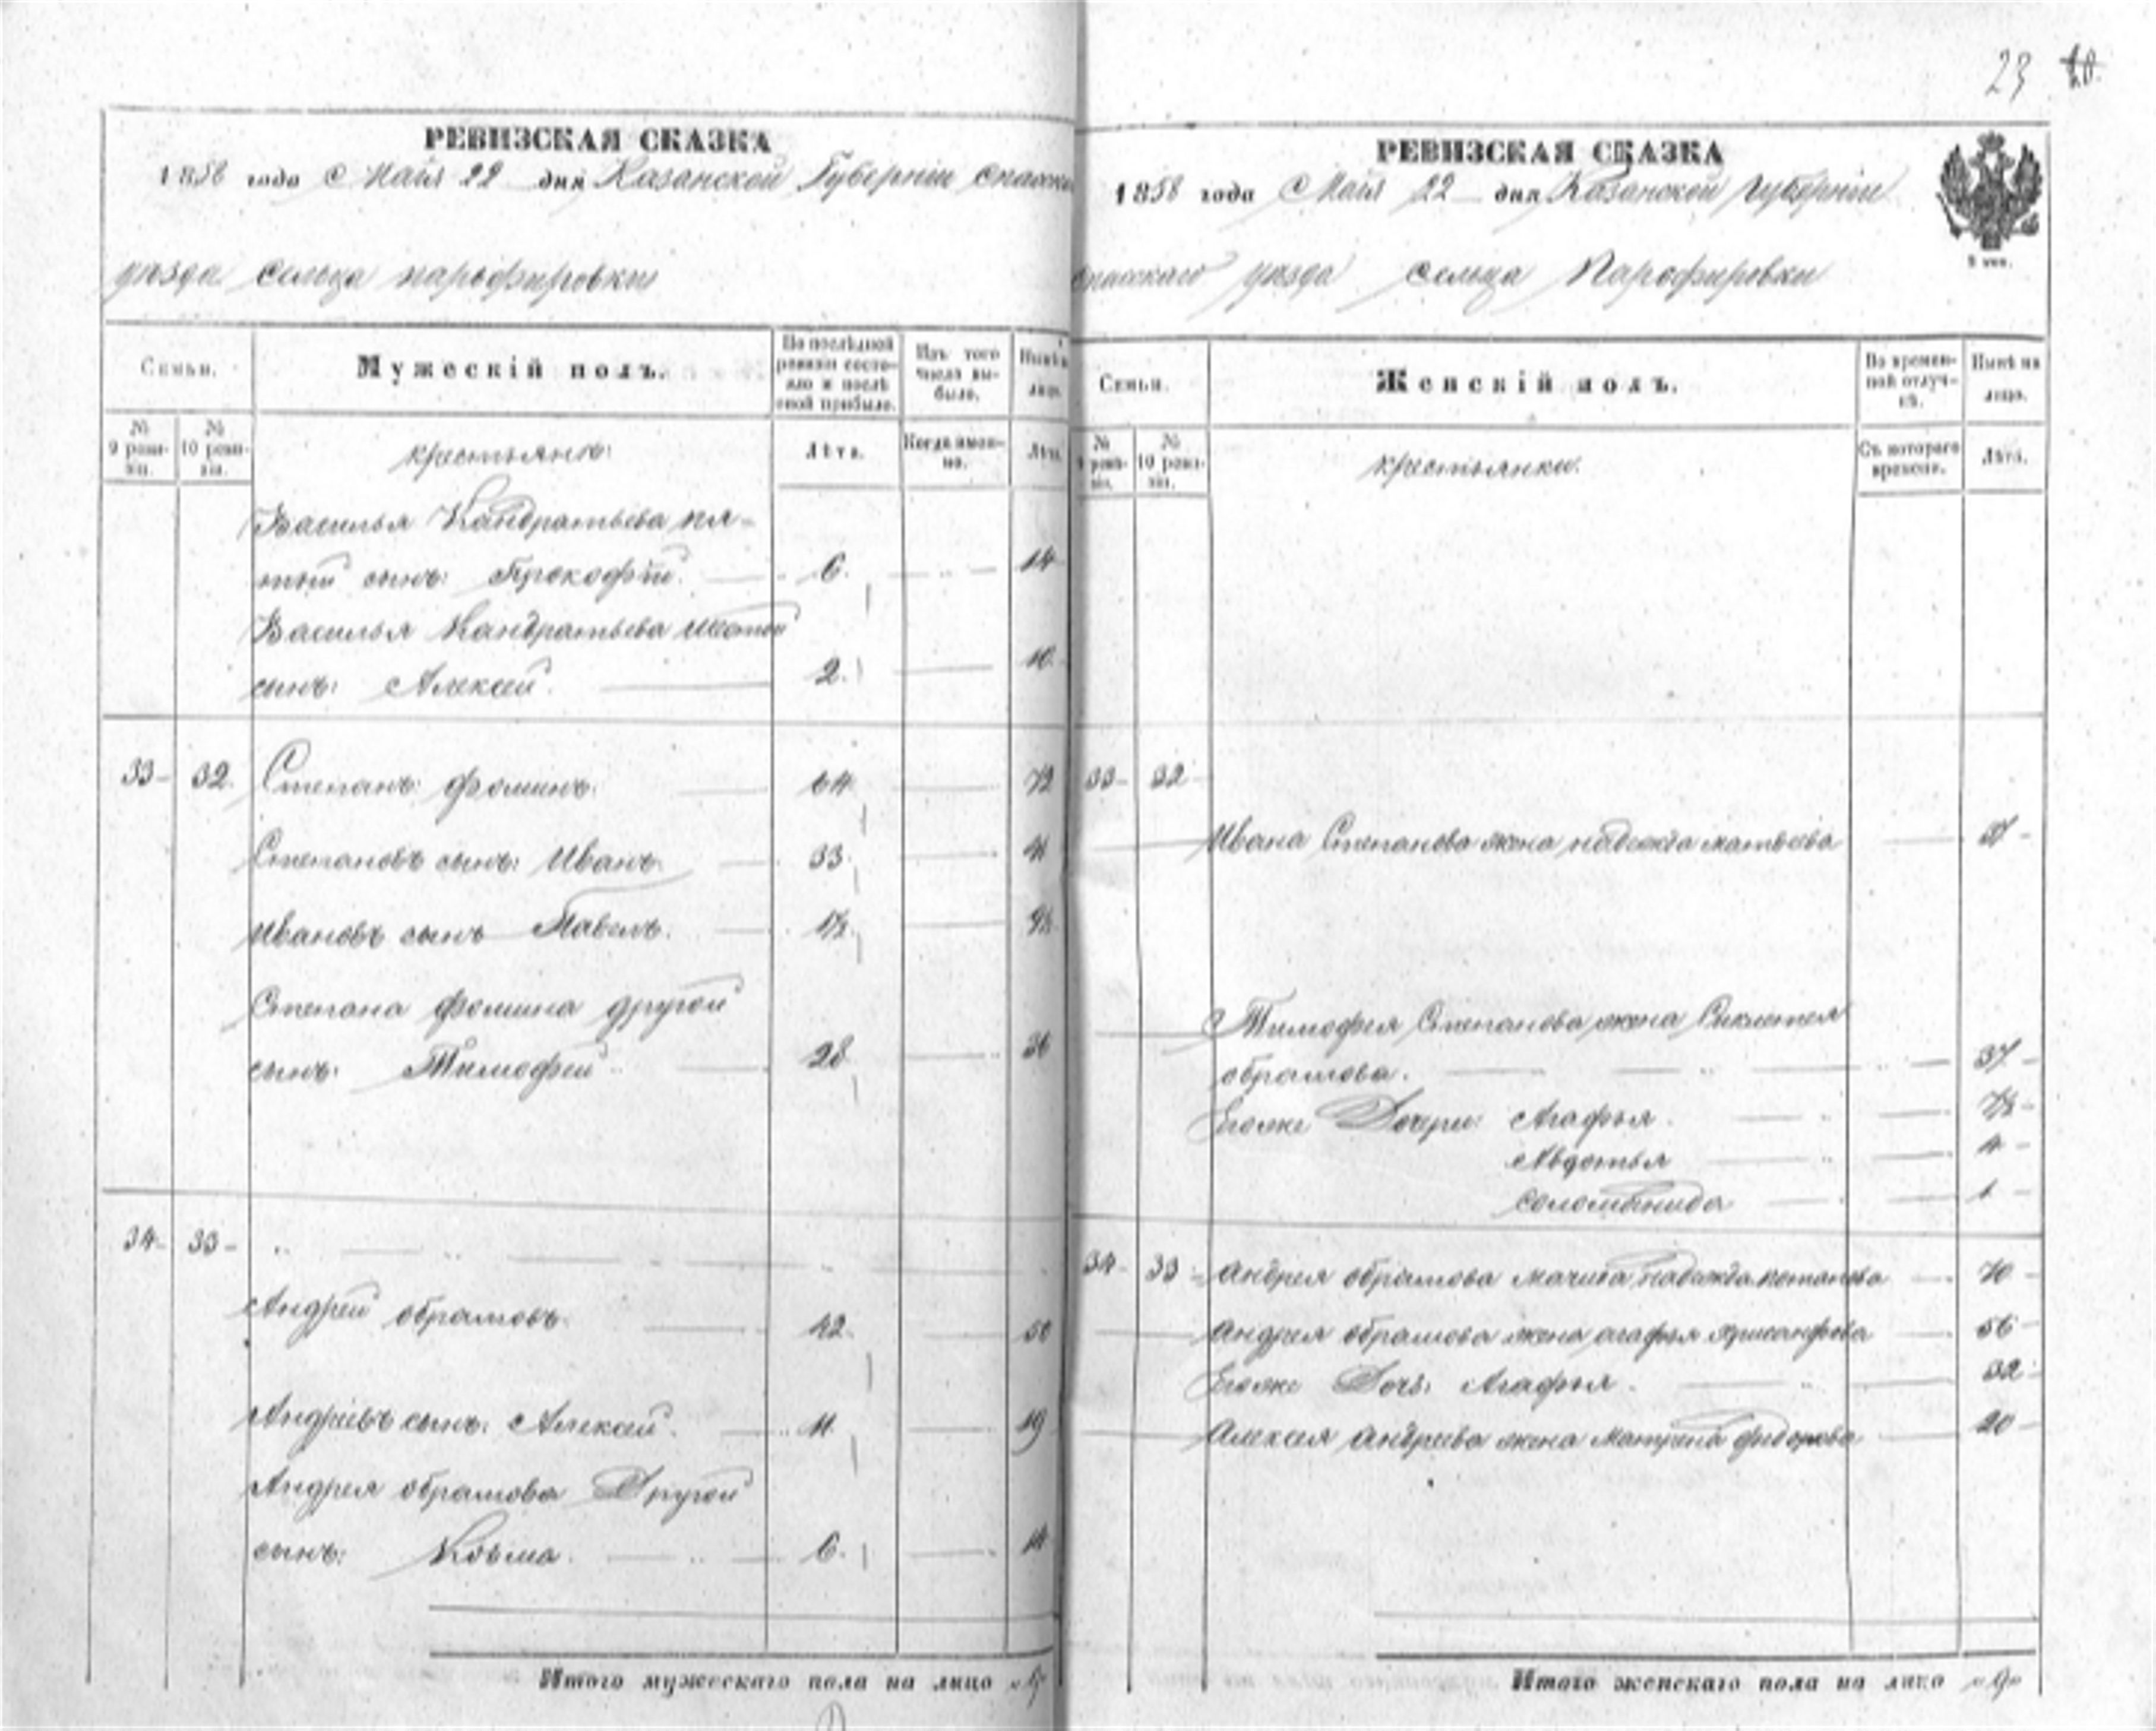 23 10.
РЕВИЗСКАЯ СКАЗКА
1858 года Майя 22 дня Казанской Губерніи Спасска
уезда сельца парьфировки
Семьи.
Мужескій полъ.
По послѣдней ревизіи состояло и послѣ оной прибыло.
Изъ того числа выбыло.
Нынѣ на лицо.
№ 9 ревизіи.
№ 10 ревизіи.
крестьяне:
Лѣта.
Когда именно.
Лѣта.
Василья Кандратьева пя-
тый сынъ: Прокофій. 6. 14
Василья Кандратьева шестой
сынъ: Алексей. 2. 10.
33 32. Степанъ фоминъ. 64 72
Степановъ сынъ: Иванъ. 33. 41
Ивановъ сынъ Павелъ. 1½. 9½
Степана фомина другой
сынъ: Тимофей 28 36
34 33
Андрей обрамовъ. 42. 50
Андреевъ сынъ: Алексей. 11. 19
Андрея обрамова Другой
сынъ: Козьма. 6. 14
Итого мужескаго пола на лицо «9»
РЕВИЗСКАЯ СКАЗКА
1858 года Майя 22 дня Казанской губерніи
спасскаго уезда сельца Парфировки
Семьи.
Женскій полъ.
Во временной отлучкѣ.
Нынѣ на лицо.
№ 9 ревизіи.
№ 10 ревизіи.
крестьянки.
Съ котораго времени.
Лѣта.
33 32
Ивана Степанова жена надежда матвеева
Тимофея Степанова жена
обрамова. 37
Егоже Дочери: Агафья. 7½
Авдотья 4
соломанида 1
34 33 Андрея обрамова мачиха надежда потапова 70
Андрея обрамова жена агафья хрисанфова 56
Егоже Дочь: Агафья. 32
Алексея Андреева жена Матрена федорова 20
Итого женскаго пола на лицо «9»